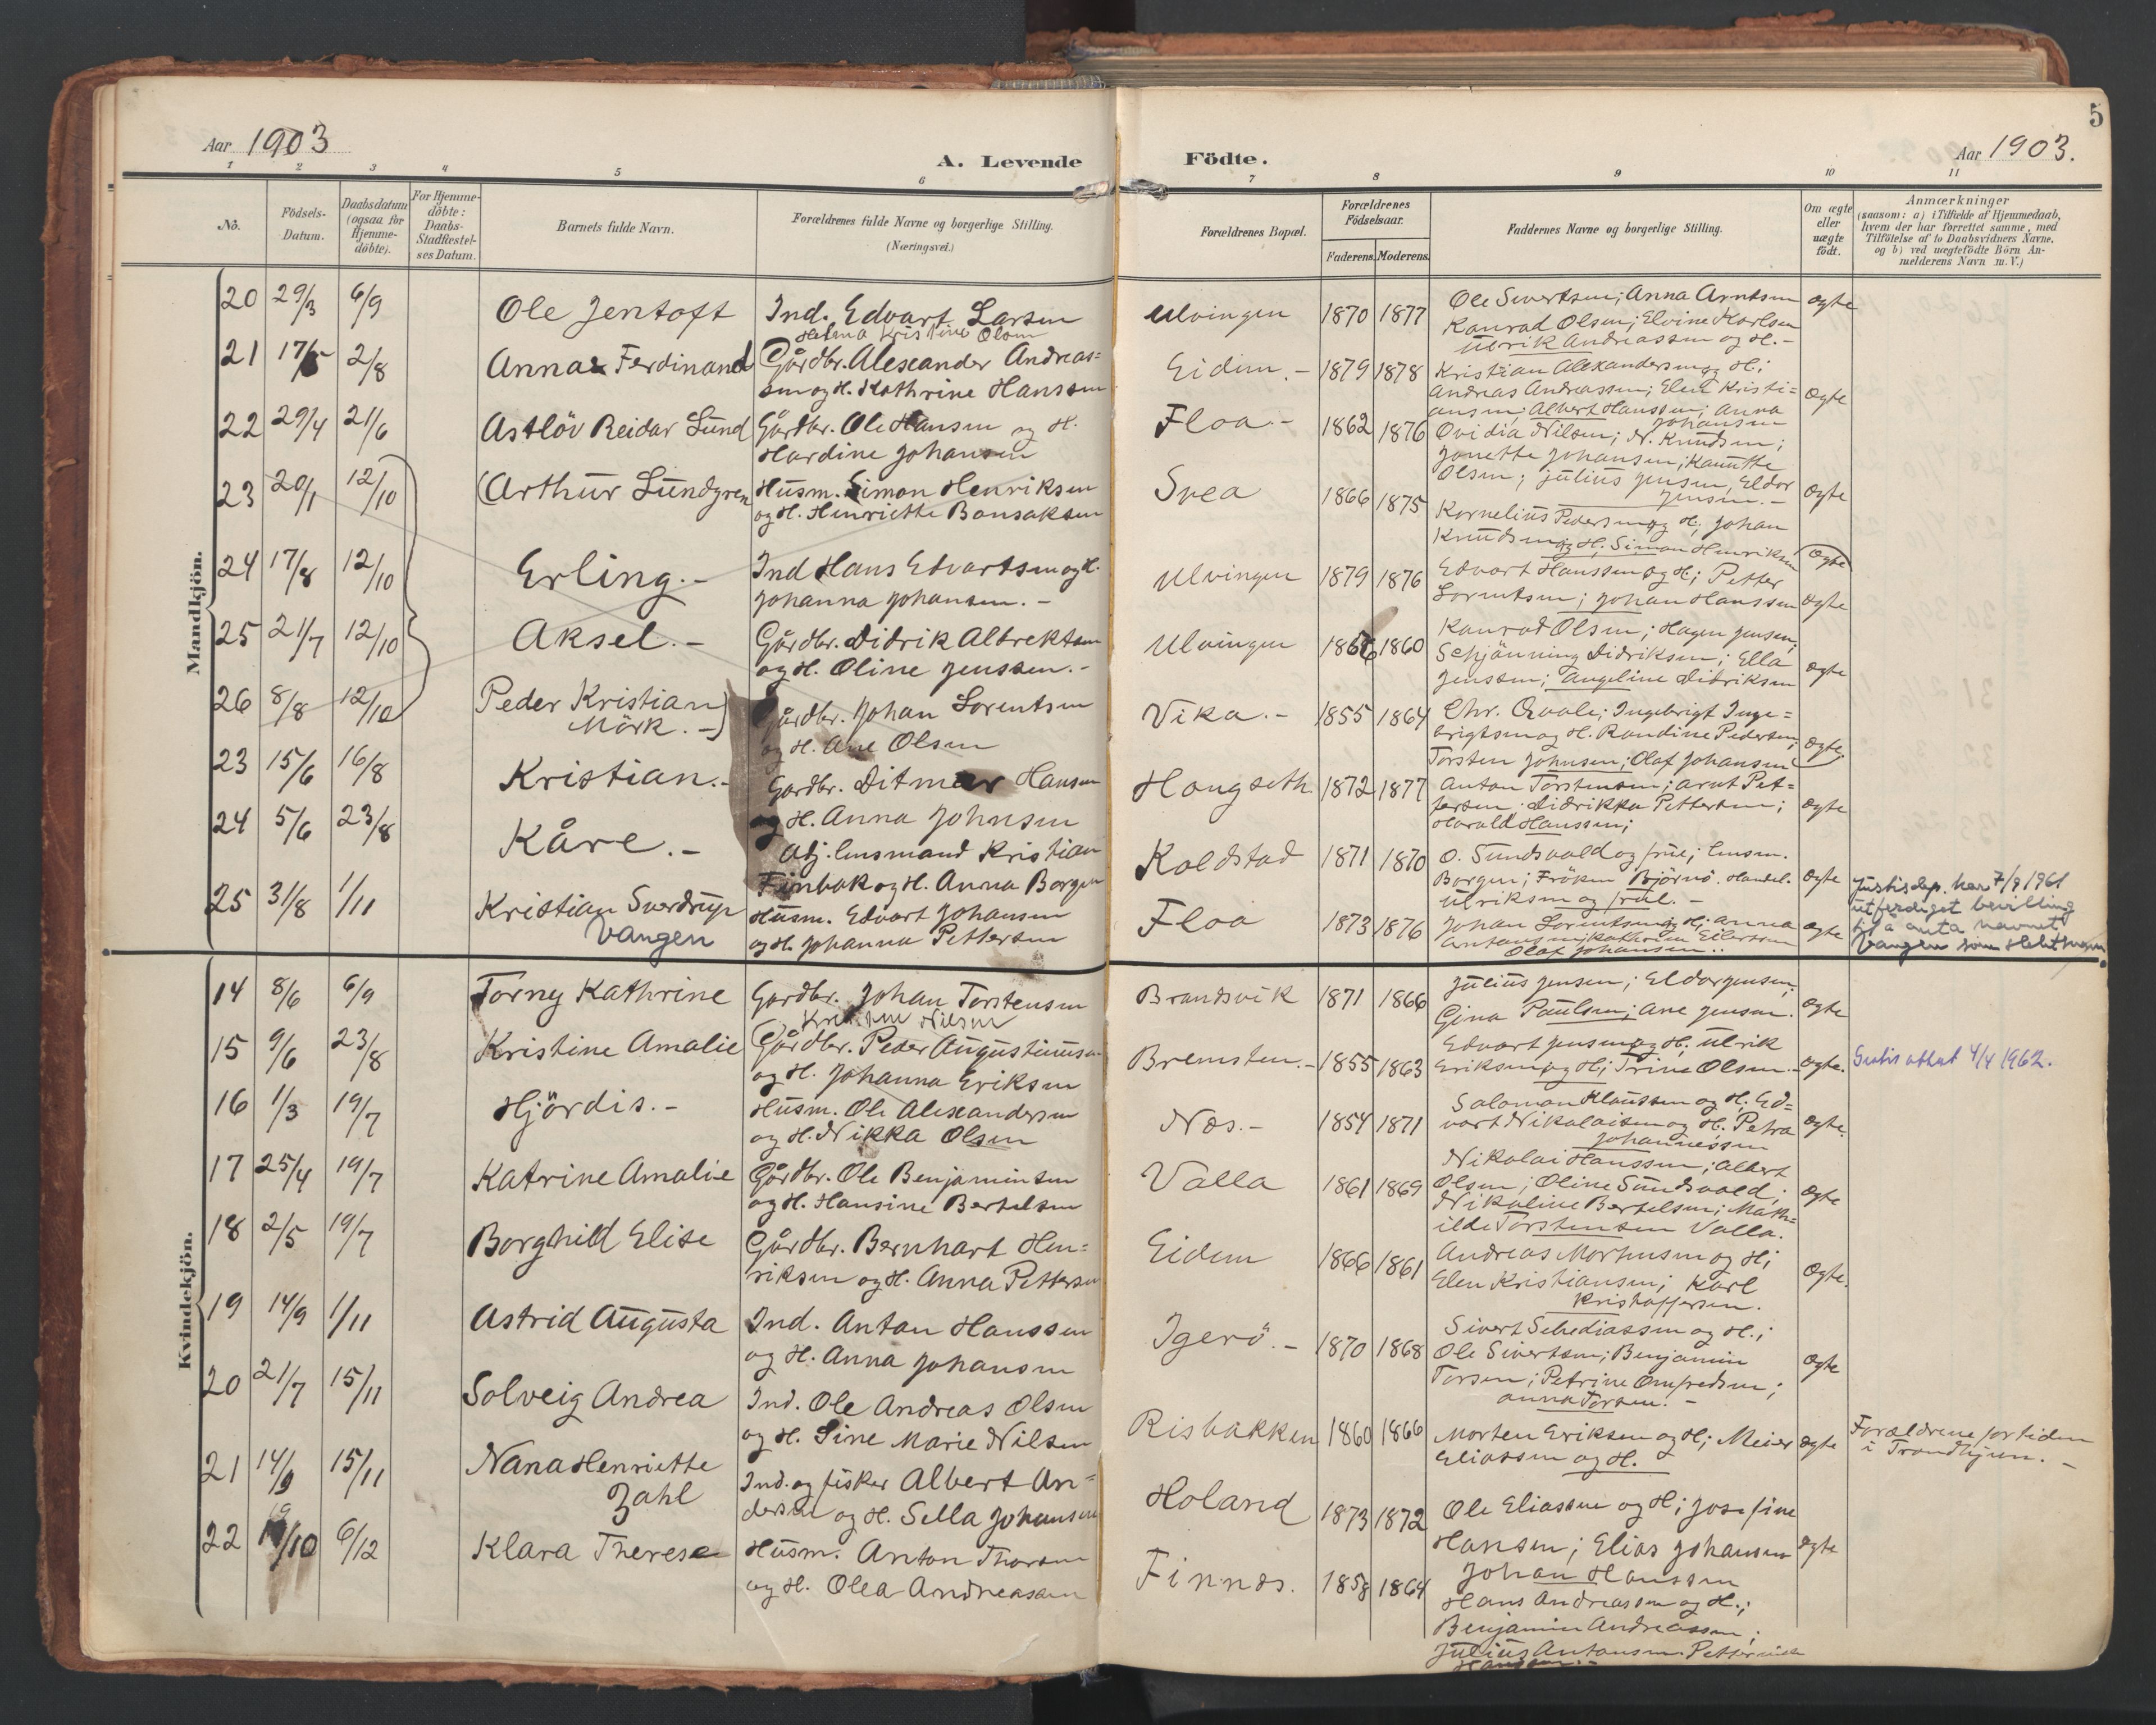 5
Aar 1903
A. Levende
Födte.
Aar 1903.
1 2 3 4 5 6 7 8 9 10 11
No.
Födsels-Datum.
Daabsdatum (ogsaa for Hjemme-döbte).
For Hjemme-döbte: Daabs-Stadfæstel-ses Datum.
Barnets fulde Navn.
Forældrenes fulde Navne og borgerlige Stilling.
(Næringsvei.)
Forældrenes Bopæl.
Forældrenes Födselsaar.
Faderens. Moderens.
Faddernes Navne og borgerlige Stilling.
Om ægte eller uægte födt.
Anmærkninger
(saasom: a) i Tilfælde af Hjemmedaab,
hvem der har forrettet samme, med
Tilföielse af to Daabsvidners Navne.
og b) ved uægtefödte Börn An-
melderens Navn m.V.)
Mandkjön.
20 29/3 6/9 Ole Jentoft Ind. Edvart Larsen
Helena Kristine Olsen
Ulvingen 1870 1877 Ole Sivertsen; Anna Arntsen
Konrad Olsen; Elvine Karlsen
Ulrik Andreassen og H.-
ægte
21 17/5 2/8 Annas Ferdinand Gårdbr. Alexander Andreas=
sen og H. Kathrine Hanssen
Eidem.- 1879 1878 Kristian Alexandersen og H;
Andreas Andreassen; Elen Kristi=
ansen; Albert Hanssen; Anna
Johansen
ægte
22 29/4 21/6 Astlöv Reidar Lund Gårdbr. Ole Hansen og H.
Hardine Johansen
Floa.- 1862 1876 Ovidia Nilsen; N. Knudsen;
Jonette Johansen; Kanutte
Olsen; Julius Jensen, Eldor
Jensen.-
ægte
23 20/1 12/10 (Arthur Lundgren Husm. Simon Henriksen
og H. Henriette Bonsaksen
Svea 1866 1875 Kornelius Pedersen og H; Johan
Knudsen og H; Simon Henriksen
ægte
24 17/8 12/10 Erling.- Ind Hans Edvartsen og H.
Johanna Johansen.-
Ulvingen 1879 1876 Edvart Hanssen og H; Petter
Lorentsen; Johan Hanssen
ægte
25 21/7 12/10 Aksel.- Gårdbr. Didrik Albrektsen
og H. Oline Jenssen.-
Ulvingen 1860 Konrad Olsen; Hagen Jensen;
Schjönning Didriksen; Ella
Jenssen; Angeline Didriksen
ægte
26 8/8 12/10 Peder Kristian
Mörk.-)
Gårdbr. Johan Lorentsen
og H. Ane Olsen
Vika.- 1855 1864 Chr. Qvale; Ingebrigt Inge=
brigtsen og H. Randine Pedersen;
Torsten Johnsen; Olaf Johansen
ægte.
23 15/6 16/8 Kristian.- Gardbr. Ditmar Hansen
og H. Anna Johnsen
Hongseth. 1872 1877 Anton Torstensen; Arnt Pet=
tersen; Didrikka Pettersen;
Harald Hanssen;
ægte
24 5/6 23/8 Kåre.- Adj. lensmand Kristian
Finbak og H. Anna Borgen
Koldstad 1871 1870 O. Sundsvold og frue; lensm.
Borgen; Fröken Björnö. Handel.
Ulriksen og frue.-
ægte
25 31/8 1/11 Kristian Sverdrup
Vangen
Husm. Edvart Johansen
og H. Johanna Pettersen
Floa 1873 1876 Johan Lorentsen og H; Anna
Antonsen; Kathrine Eilertsen
Olaf Johansen..
ægte
Justisdep. har 7/9 1961
utferdiget bevilling
til å anta navnet
Vangen som slektsnavn
Kvindekjön.
14 8/6 6/9 Torny Kathrine Gardbr. Johan Torstensen
Nilsen
Brandsvik 1871 1866 Julius Jensen; Eldor Jensen;
Gina Paulsen; Ane Jensen.
ægte
15 9/6 23/8 Kristine Amalie Gårdbr. Peder Augustinusen
og H. Johanna Eriksen
Bremsten.- 1855 1863 Edvart Jensen og H; Ulrik
Eriksen og H; Trine Olsen.-
ægte. 4/4 1962.
16 1/3 19/7 Hjördis.- Husm. Ole Alexandersen
og H. Nikka Olsen
Næs.- 1854 1871 Salomon Klaussen og H; Ed=
vart Nikolaisen og H. Petra
Johannessen
ægte.
17 25/4 19/7 Katrine Amalie Gårdbr. Ole Benjaminsen
og H. Hansine Bertelsen
Valla 1861 1869 Nikolai Hanssen; Albert
Olsen; Oline Sundsvold;
Nikoline Bertelsen; Math=
ilde Torstensen Valla.
ægte
18 2/5 19/7 Borghild Elise Gårdbr. Bernhart Hen=
riksen og H. Anna Pettersen
Eidem 1866 1861 Andreas Mortensen og H;
Elen Kristiansen; Karl
Kristoffersen.
ægte.
19 14/9 1/11 Astrid Augusta Ind. Anton Hanssen
og H. Anna Johansen
Igerö.- 1870 1868 Sivert Sehediassen og H.;
Ole Sivertsen; Benjamin
Torsen; Petrine Omfredsen;
Anna Torsen.-
ægte
20 21/7 15/11 Solveig Andrea Ind. Ole Andreas Olsen
og H. Sine Marie Nilsen
Risbakken 1860 1866 Morten Eriksen og H; Meier
Eliassen og H.
ægte
Forældrene for tiden
i Trondhjem.-
21 14/9 15/11 Nana Henriette
Zahl
Ind. og fisker Albert An=
dersen og H. Sella Johansen
Holand 1873 1872 Ole Eliassen og H; Josefine
Hansen; Elias Johansen
Johan Hanssen
ægte
22 19/10 6/12 Klara Therese Husm. Anton Thorsen
og H. Olea Andreassen
Finnæs. 1858 1864 Hans Andreassen og H.;
Benjamin Andreassen;
Julius Antonsen.
Hanssen.-